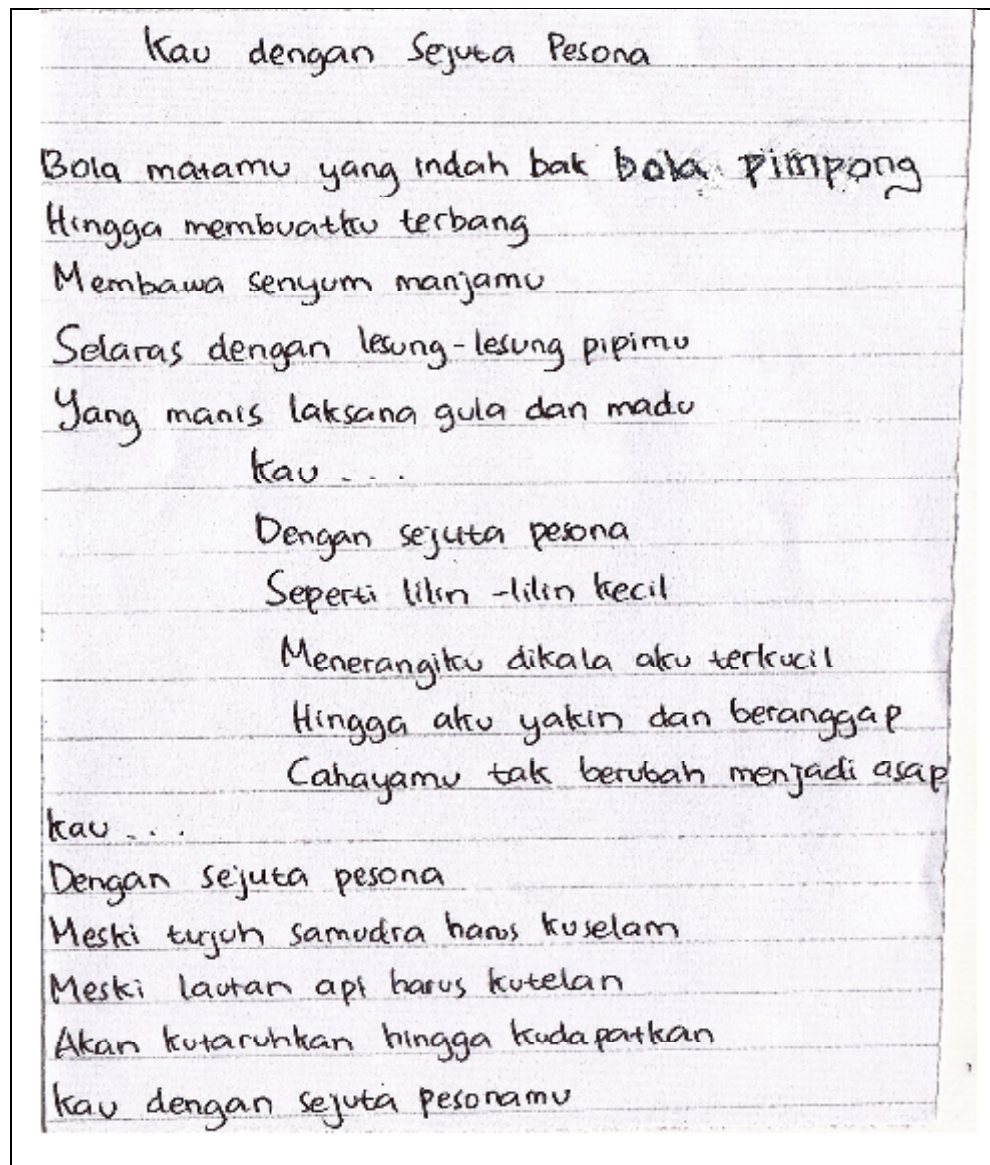 Kau dengan Sejuta Pesona
Bola matamu yang indah bak bola pimpong
Hingga membuatku terbang
Membawa senyum manjamu
Selaras dengan lesung-lesung pipimu
Yang manis laksana gula dan madu
Kau ...
Dengan sejuta pesona
Seperti lilin-lilin kecil
Menerangiku dikala aku terkucil
Hingga aku yakin dan beranggap
Cahayamu tak berubah menjadi asap
Kau ...
Dengan sejuta pesona
Meski tujuh samudra harus kuselam
Meski lautan api harus kutelan
Akan kutaruhkan hingga kudapatkan
Kau dengan sejuta pesonamu